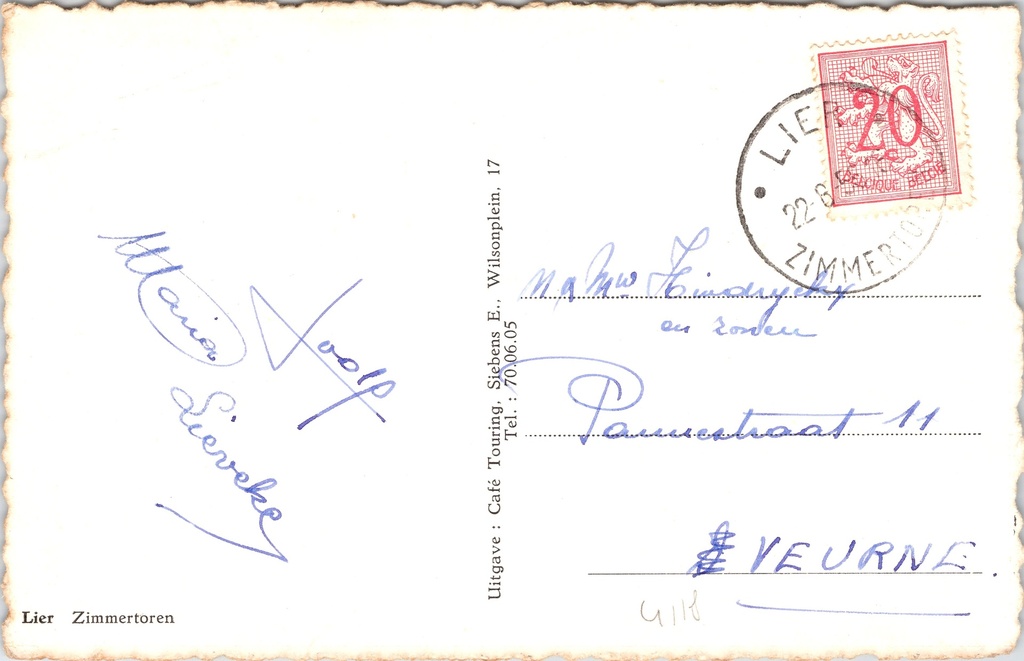 20
BELGIQUE BELGIE
LIER
22-8
ZIMMERTOR
Maria
Lieveke
Uitgave : Café Touring, Siebens E., Wilsonplein, 17
Tel. : 70.06.05
Mr Mw
en zonen
Pannestraat 11
VEURNE.
Lier Zimmertoren